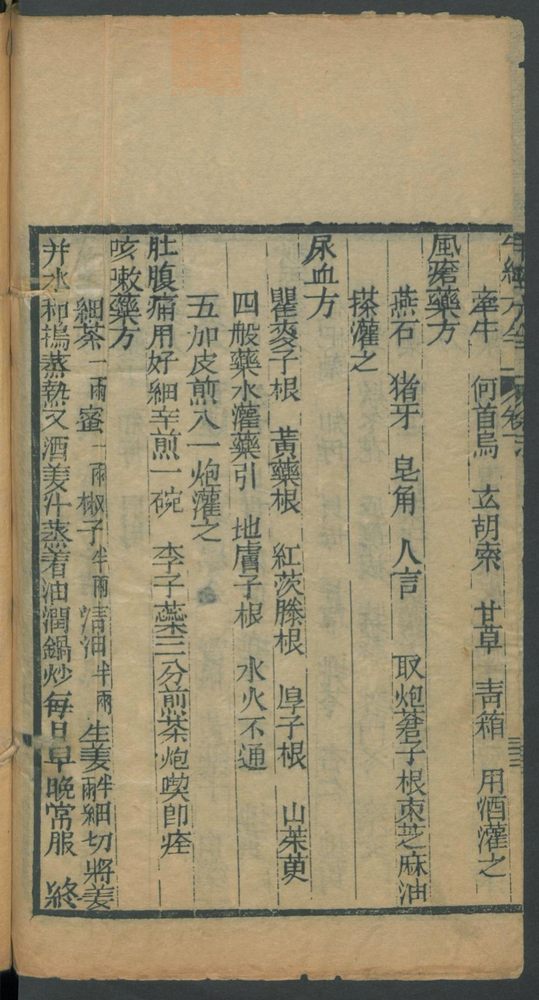 牽牛　何首烏　玄胡索　甘草　青箱　用酒灌之
風瘡藥方
燕石　猪牙　皂角　人言　取炮蒼子根東芝麻油
搽灌之
尿血方
瞿麥子根　黃藥根　紅茨滕根　厚子根　山茱萸
四般藥水灌藥引　地膚子根　水火不通
五加皮煎入一炮灌之
肚腹痛用好細辛煎一碗　李子藥三分煎茶炮喫卽痊
咳嗽藥方
細茶一兩蜜一兩椒子半兩清油半兩生姜半兩細切將姜
井水和搗蒸熱又酒姜汁蒸着油潤鍋炒每日早晚常服　終